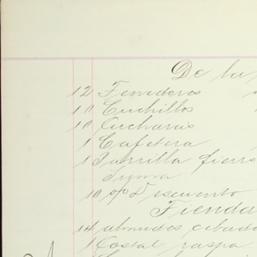 De la
12 Tenedores
10 Cuchillos
10 Cucharas
1 Cafetera
1 Parrilla fierro
Suma
10 % Descuento
Tienda
14 almudes cebada
1 Costal raspa